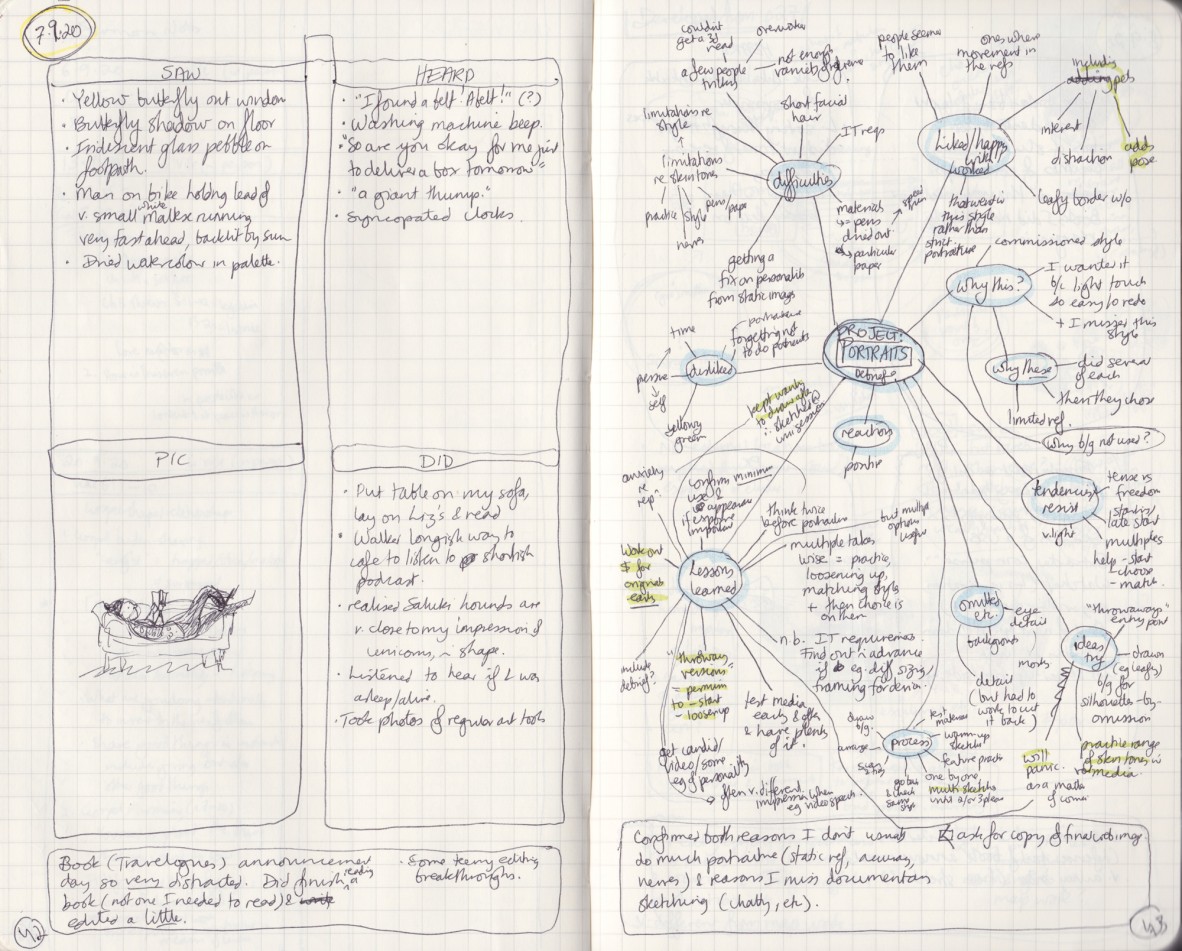 7.9.20
SAW
· Yellow butterfly out window
· Butterfly shadow on floor
· Iridescent glass pebble on
footpath.
· Man on bike holding lead of
v. small white maltese running
very fast ahead, backlit by sun
· Dried watercolour in palette.
HEARD
· "I found a belt. A belt!" (?)
· Washing machine beep.
· "So are you okay for me just
to deliver a box tomorrow"
· "a giant thump."
· Syncopated clocks.
PIC
DID
· Put table on my sofa,
lay on Liz's & read
· Walked longish way to
cafe to listen to shortish
podcast.
· realised Saluki hounds are
v. close to my impression of
unicorns, in shape.
· Listened to hear if L was
asleep/alive.
· Took photos of regular art tools
Book (Travelogues) announcement
day so very distracted. Did finish reading a
book (not one I needed to read) &
edited a little.
· Some teeny editing
breakthroughs.
42
PROJECT:
PORTRAITS
Debrief
difficulties
couldn't
get a 3d
read
overwork
a few people
trickey
not enough
variety of
short facial
hair
IT reqs
limitations re
style
limitations
re skin tones
practice
style
pens/paper
nerves
materials
pens
dried out
particular
paper
getting a
fix on personality
from static image
Liked/happy
with
worked
people seemed
to like
them
ones where
movement in
the refs
including
adding pets
interest
distraction
adds
pose
leafy border w/o
that went in
this style
rather than
strict
portraiture
why this?
commissioned style
I wanted it
b/c light touch
so easy to redo
+ I missed this
style
why these
did several
of each
then they chose
limited ref.
why b/g not used?
disliked
time
portraiture
forgetting not
to do portraits
pressure
self
yellowy
green
reaction
positive
kept wanting
to draw
∴ sketched
tendencies
resist
tense vs
freedom
starting/
late start
multiples
help - start
- choose
- match.
v. light
Lessons
learned
anxiety
re
rep?
confirm minimum
use &
appearance
if response
important
think twice
before portraiture
but multiple
options
useful
multiple takes
wise = practice,
loosening up,
matching style
+ then choice is
on them
n.b. IT requirements.
Find out in advance
if eg. diff. sizing/
framing for denia.
Work out
$ for
originals
early
include
debrief?
"throwaway
versions"
- permission
to - start
- loosen up
test media
early & often
& have plenty
of it.
get candid/
video/some
eg of personality
often v. different
impression when
eg video speech
omitted
etc.
eye
detail
background
detail
(but had to
work to cut
it back)
ideas,
try
"throwaways"
entry point
drawn
(eg leafy)
b/g for
silhouette-by-
omission
practice range
of skin tones in
media.
marks
will
panic.
as a matter
of course
process
draw
b/g.
arrange
test
materials
warm-up
sketches
feature practice
one by one
multi sketches
until 2 or 3 please
Confirmed both reasons I don't usually
do much portraiture (static ref, accuracy,
nerves) & reasons I miss documentary
sketching (chatty, etc).
ask for copy of final
43